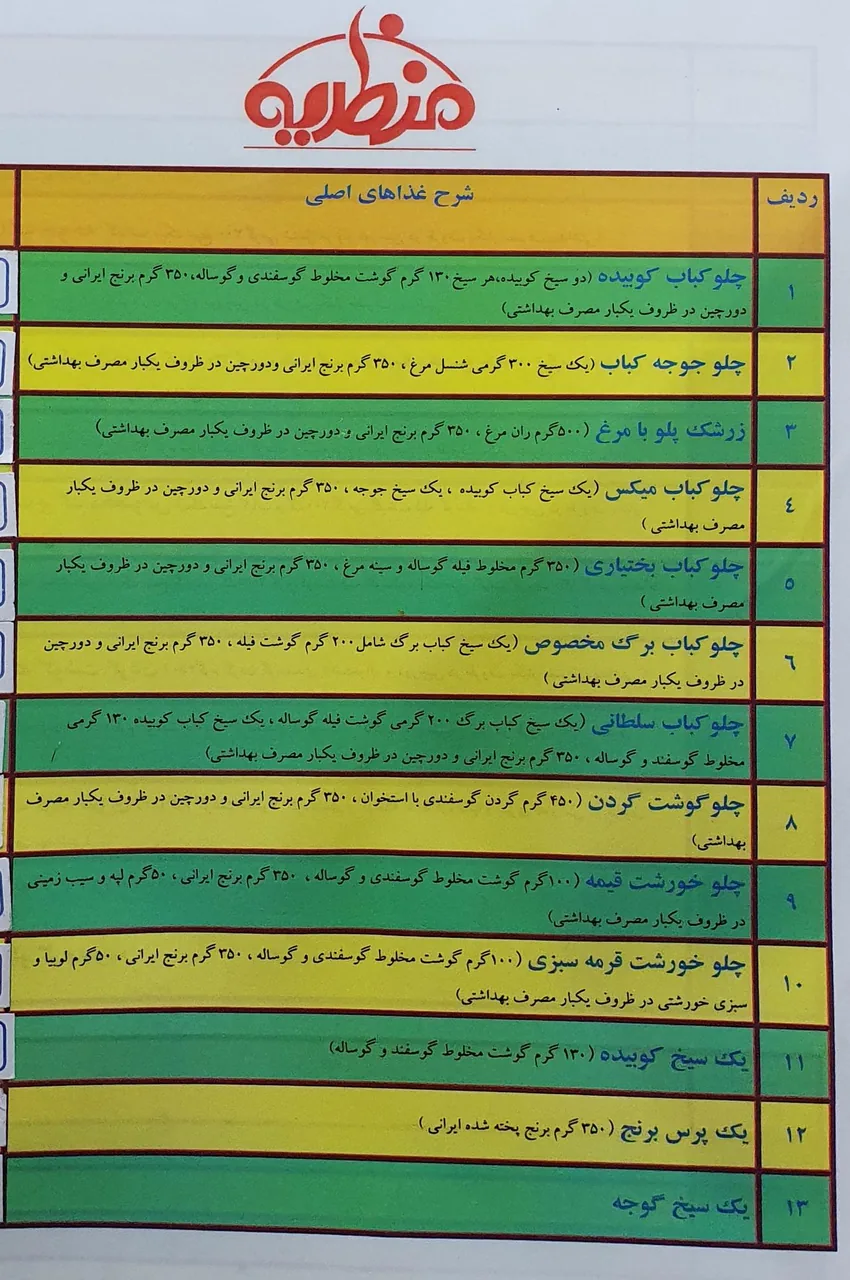 منظریه
ردیف شرح غذاهای اصلی
۱ چلو کباب کوبیده (دو سیخ کوبیده،هر سیخ ۱۳۰ گرم گوشت مخلوط گوسفندی وگوساله،۳۵۰ گرم برنج ایرانی و
دورچین در ظروف یکبار مصرف بهداشتی)
۲ چلو جوجه کباب (یک سیخ ۳۰۰ گرمی شنسل مرغ ، ۳۵۰ گرم برنج ایرانی ودورچین در ظروف یکبار مصرف بهداشتی)
۳ زرشک پلو با مرغ (۵۰۰گرم ران مرغ ، ۳۵۰ گرم برنج ایرانی و دورچین در ظروف یکبار مصرف بهداشتی)
۴ چلو کباب میکس (یک سیخ کباب کوبیده ، یک سیخ جوجه ، ۳۵۰ گرم برنج ایرانی و دورچین در ظروف یکبار
مصرف بهداشتی )
۵ چلو کباب بختیاری (۳۵۰ گرم مخلوط فیله گوساله و سینه مرغ ، ۳۵۰ گرم برنج ایرانی و دورچین در ظروف یکبار
مصرف بهداشتی )
۶ چلو کباب برگ مخصوص (یک سیخ کباب برگ شامل۲۰۰ گرم گوشت فیله ، ۳۵۰ گرم برنج ایرانی و دورچین
در ظروف یکبار مصرف بهداشتی )
۷ چلو کباب سلطانی (یک سیخ کباب برگ ۲۰۰ گرمی گوشت فیله گوساله ، یک سیخ کباب کوبیده ۱۳۰ گرمی
مخلوط گوسفند و گوساله ، ۳۵۰ گرم برنج ایرانی و دورچین در ظروف یکبار مصرف بهداشتی)
۸ چلو گوشت گردن (۴۵۰ گرم گردن گوسفندی با استخوان ، ۳۵۰ گرم برنج ایرانی و دورچین در ظروف یکبار مصرف
بهداشتی)
۹ چلو خورشت قیمه (۱۰۰گرم گوشت مخلوط گوسفندی و گوساله ، ۳۵۰ گرم برنج ایرانی ، ۵۰گرم لپه و سیب زمینی
در ظروف یکبار مصرف بهداشتی)
۱۰ چلو خورشت قرمه سبزی (۱۰۰گرم گوشت مخلوط گوسفندی و گوساله ، ۳۵۰ گرم برنج ایرانی ، ۵۰گرم لوبیا و
سبزی خورشتی در ظروف یکبار مصرف بهداشتی)
۱۱ یک سیخ کوبیده (۱۳۰ گرم گوشت مخلوط گوسفند و گوساله)
۱۲ یک پرس برنج (۳۵۰ گرم برنج پخته شده ایرانی )
۱۳ یک سیخ گوجه